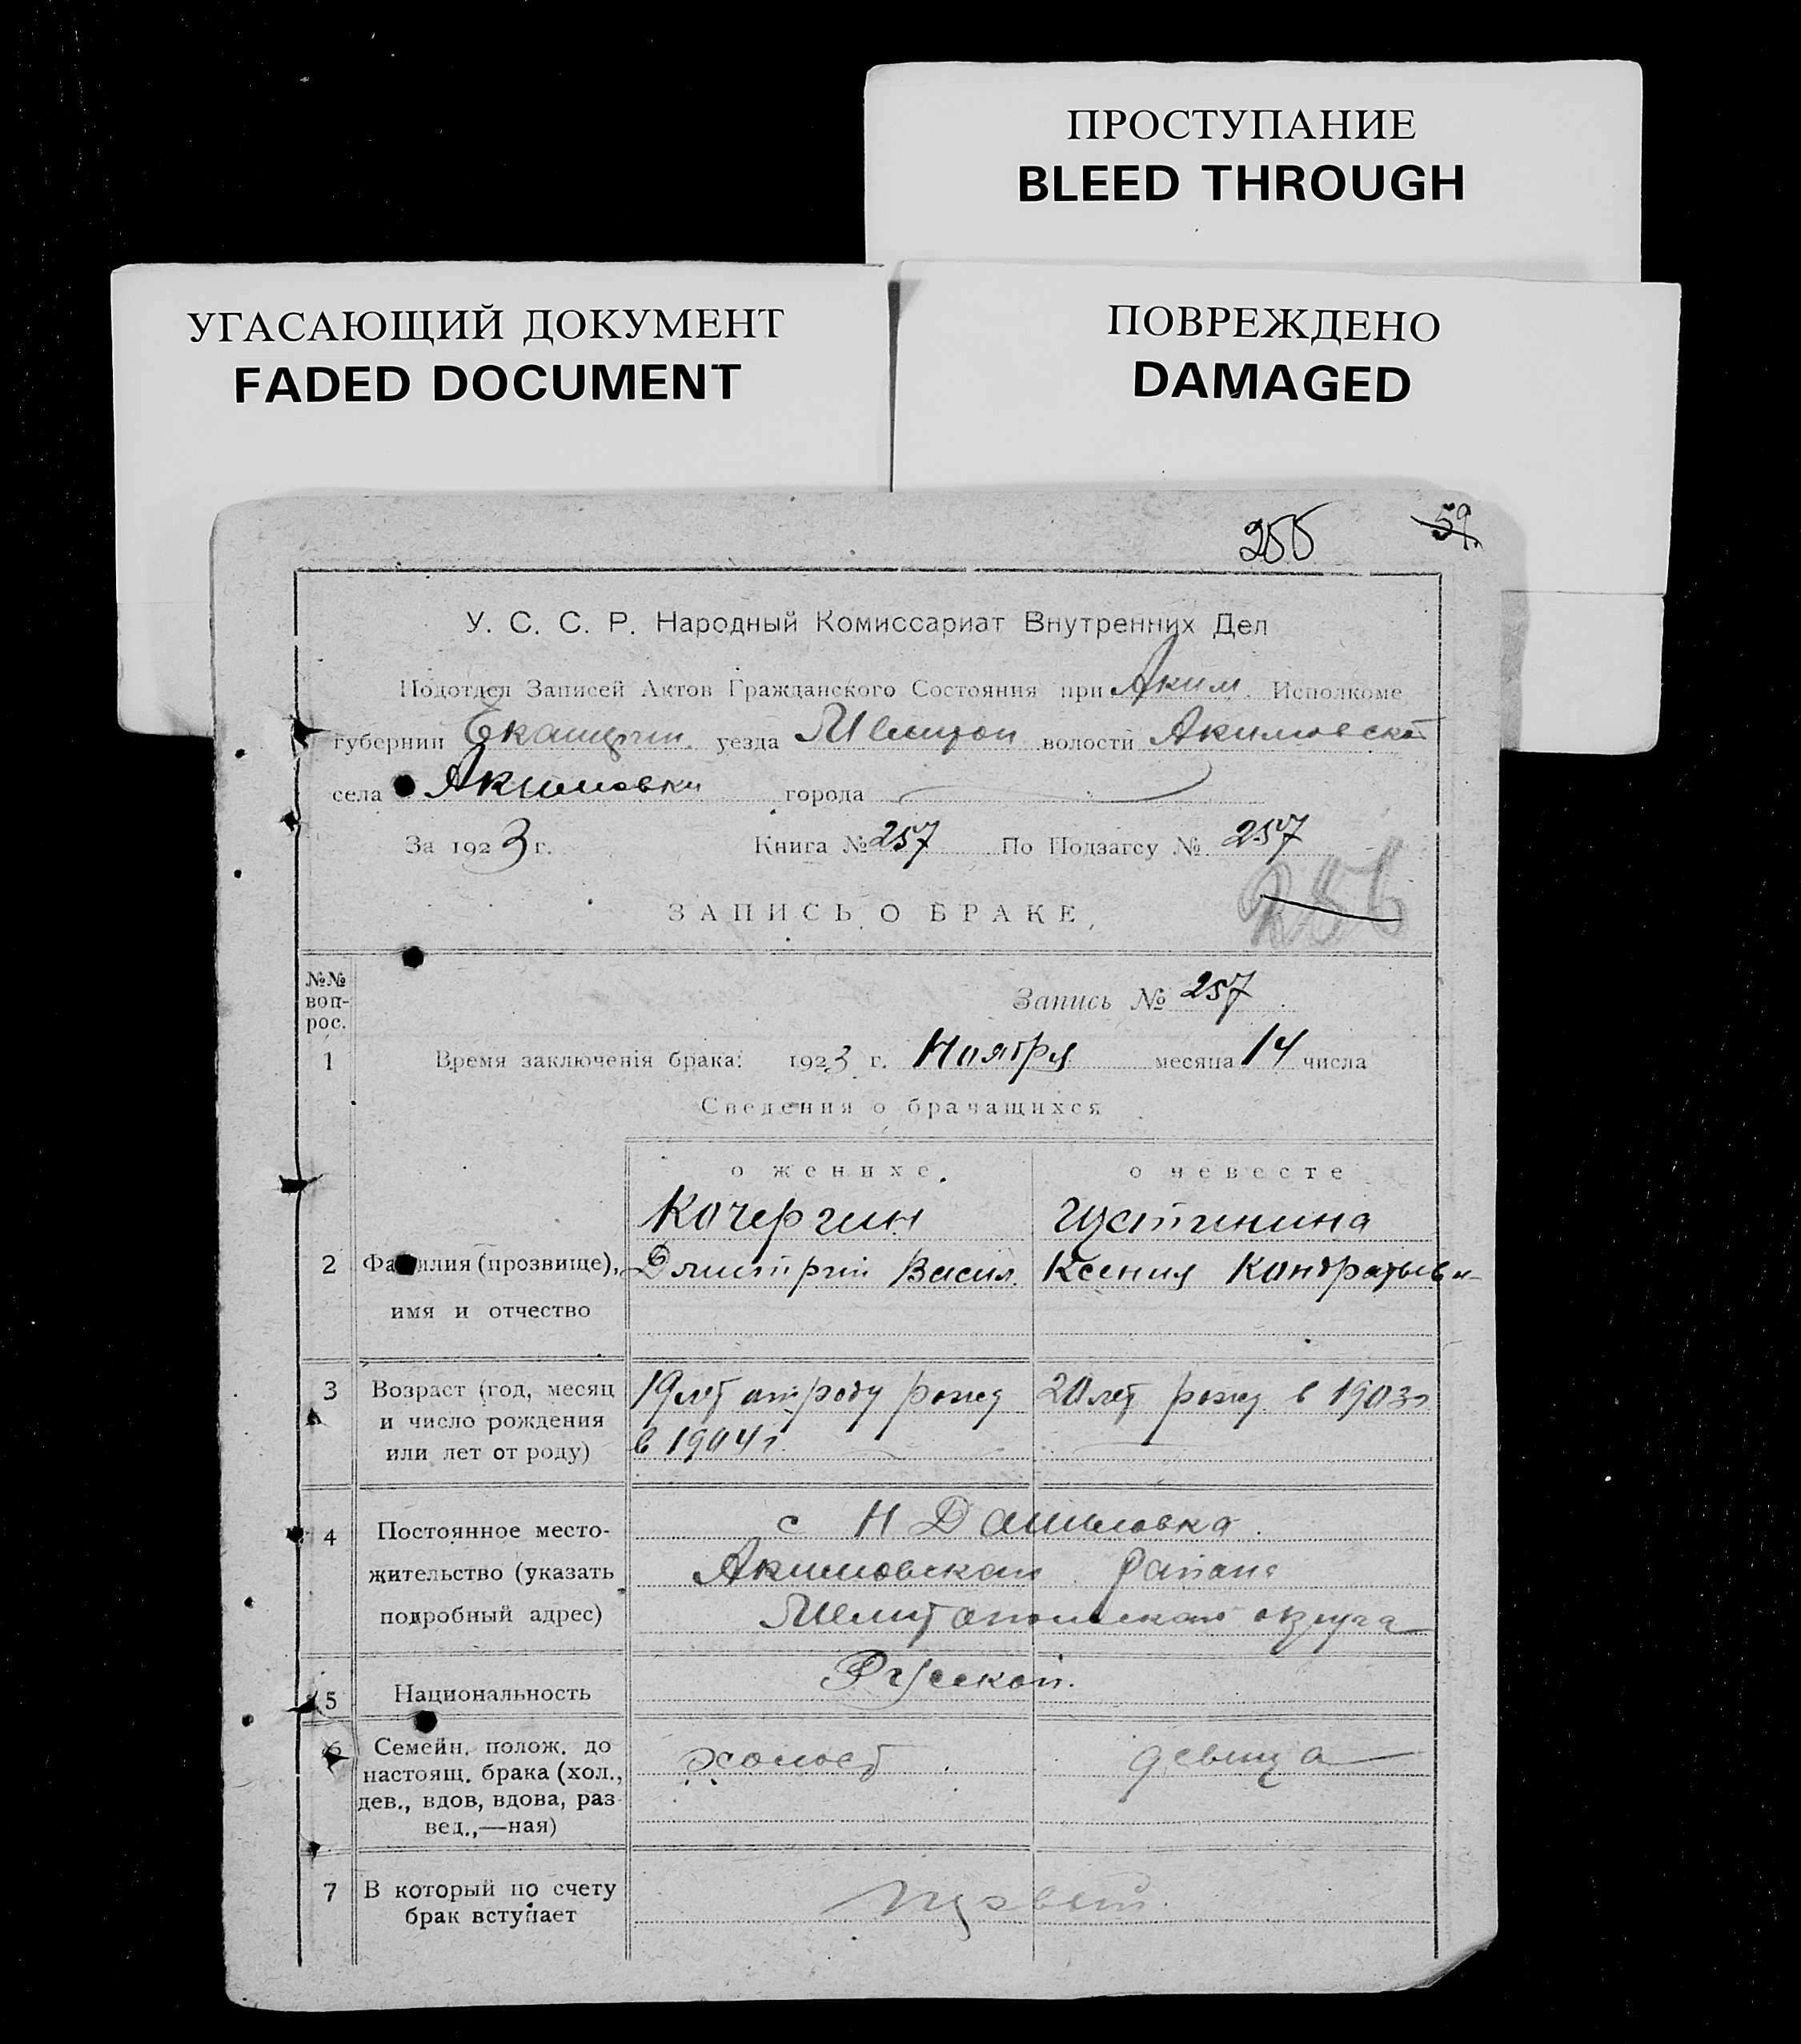 ПРОСТУПАНИЕ
BLEED THROUGH
УГАСАЮЩИЙ ДОКУМЕНТ
FADED DOCUMENT
ПОВРЕЖДЕНО
DAMAGED
255 59
У. С. С. Р. Народный Комиссариат Внутренних Дел
Подотдел Записей Актов Гражданского Состояния при Аким. Исполкоме
губернии уезда Мелитоп волости Акимовской
села Акимовки города
За 1923 г. Книга № 257 По Подзагсу № 257
256
ЗАПИСЬ О БРАКЕ
№№ воп-рос.
Запись № 257
1 Время заключенія брака: 1923 г. Ноября месяца 14 числа
Сведения о брачащихся
о женихе. о невесте
Кочергин Густинина
2 Фамилия (прозвище), Дмитрий Васил. Ксения Кондратьевн
имя и отчество
3 Возраст (год, месяц 19 лет от роду рожд 20 лет рожд. в 1903 г
и число рождения в 1904 г.
или лет от роду)
4 Постоянное место- с Н Даниловка
жительство (указать Акимовского района
подробный адрес) Мелитопольского округа
5 Национальность Русской.
6 Семейн. полож. до холост девица
настоящ. брака (хол.,
дев., вдов, вдова, раз-
вед.,—ная)
7 В который по счету первый
брак вступает